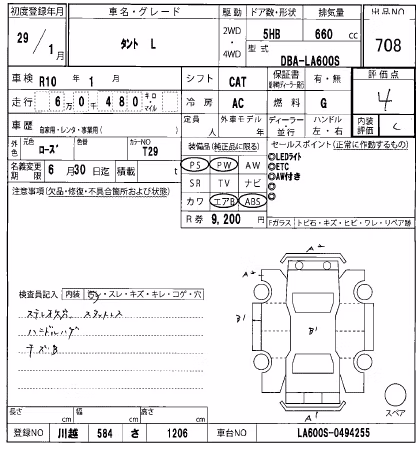 初度登録年月
車名・グレード
駆動
ドア数・形状
排気量
出品NO
29/1月
タント L
2WD
・
4WD
5HB
660 cc
708
型式
DBA-LA600S
車検 R10 年 1 月
シフト CAT
保証書
有・無
評価点
走行 6万0千480 キロ・マイル
冷房 AC
燃料 G
4
車歴
自家用・レンタ・事業用( )
定員 人
外車モデル 年
ディーラー・並行
ハンドル 左・右
内装評価 C
外色
元色 ローズ
色替
カラーNO T29
装備品(純正品に限る)
セールスポイント(正常に作動するもの)
名義変更期限 6月30日迄
積載 t
PS PW AW
◎LEDライト
◎ETC
◎AW付き
◎
◎
注意事項(欠品・修復・不具合箇所および状態)
SR TV ナビ
カワ エアB ABS
R券 9,200 円
Fガラス トビ石・キズ・ヒビ・ワレ・リペア跡
A2
A2
検査員記入
内装
・スレ・キズ・キレ・コゲ・穴
B1
B1
ハンドルハゲ
A1
スペア
長さ cm
幅 cm
高さ cm
登録NO 川越 584 さ 1206
車台NO LA600S-0494255